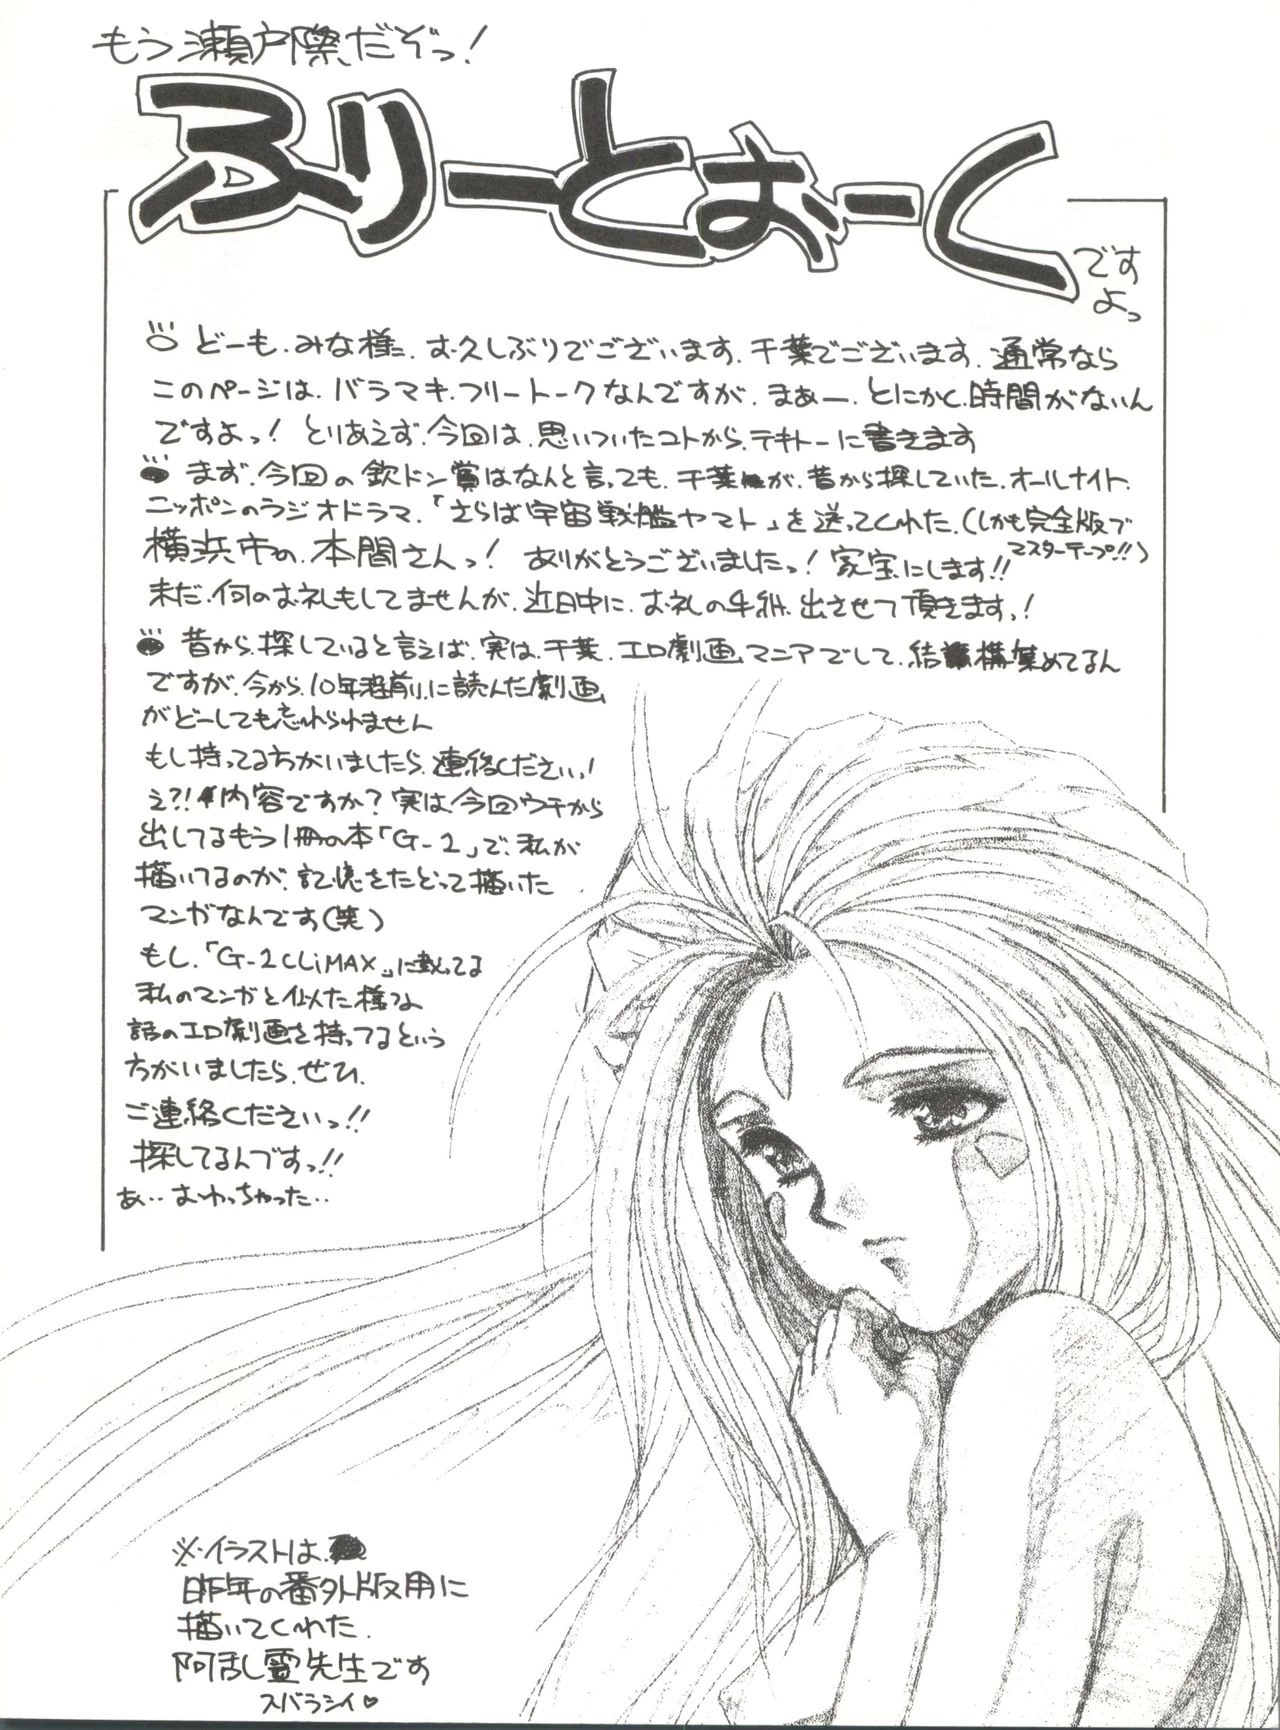 もう瀬戸際だぞっ!
ふりーとおーく
ですよっ
どーも、みな様、お久しぶりでございます、千葉でございます、通常なら
このページは、バラマキ、フリートークなんですが、まぁー、とにかく、時間がないん
ですよっ! とりあえず、今回は、思いついたコトから、テキトーに書きます
まず、今回の欽ドン賞はなんと言っても、千葉が、昔から探していた、オールナイト、
ニッポンのラジオドラマ、「さらば宇宙戦艦ヤマト」を送ってくれた、(しかも完全版で
マスターテープ!!)
横浜市の、本間さんっ! ありがとうございましたっ! 家宝にします!!
未だ、何のお礼もしてませんが、近日中に、お礼の手紙、出させて頂きますっ!
昔から、探していると言えば、実は、千葉、エロ劇画、マニアでして、結構集めてるん
ですが、今から、10年程前、に読んだ劇画
がどーしても忘れられません
もし持ってる方がいましたら、連絡くださいっ!
え?! 内容ですか? 実は、今回ウチから
出してるもう1冊の本「G-2」で、私が
描いてるのが、記憶をたどって描いた
マンガなんです(笑)
もし、「G-2CLiMAX」に載ってる
私のマンガと似た様な
話のエロ劇画を持ってるという
方がいましたら、ぜひ、
ご連絡くださいっ!!
探してるんですっ!!
あ‥おわっちゃった‥
※イラストは、
昨年の番外版用に
描いてくれた、
阿乱霊先生です
スバラシイ♡